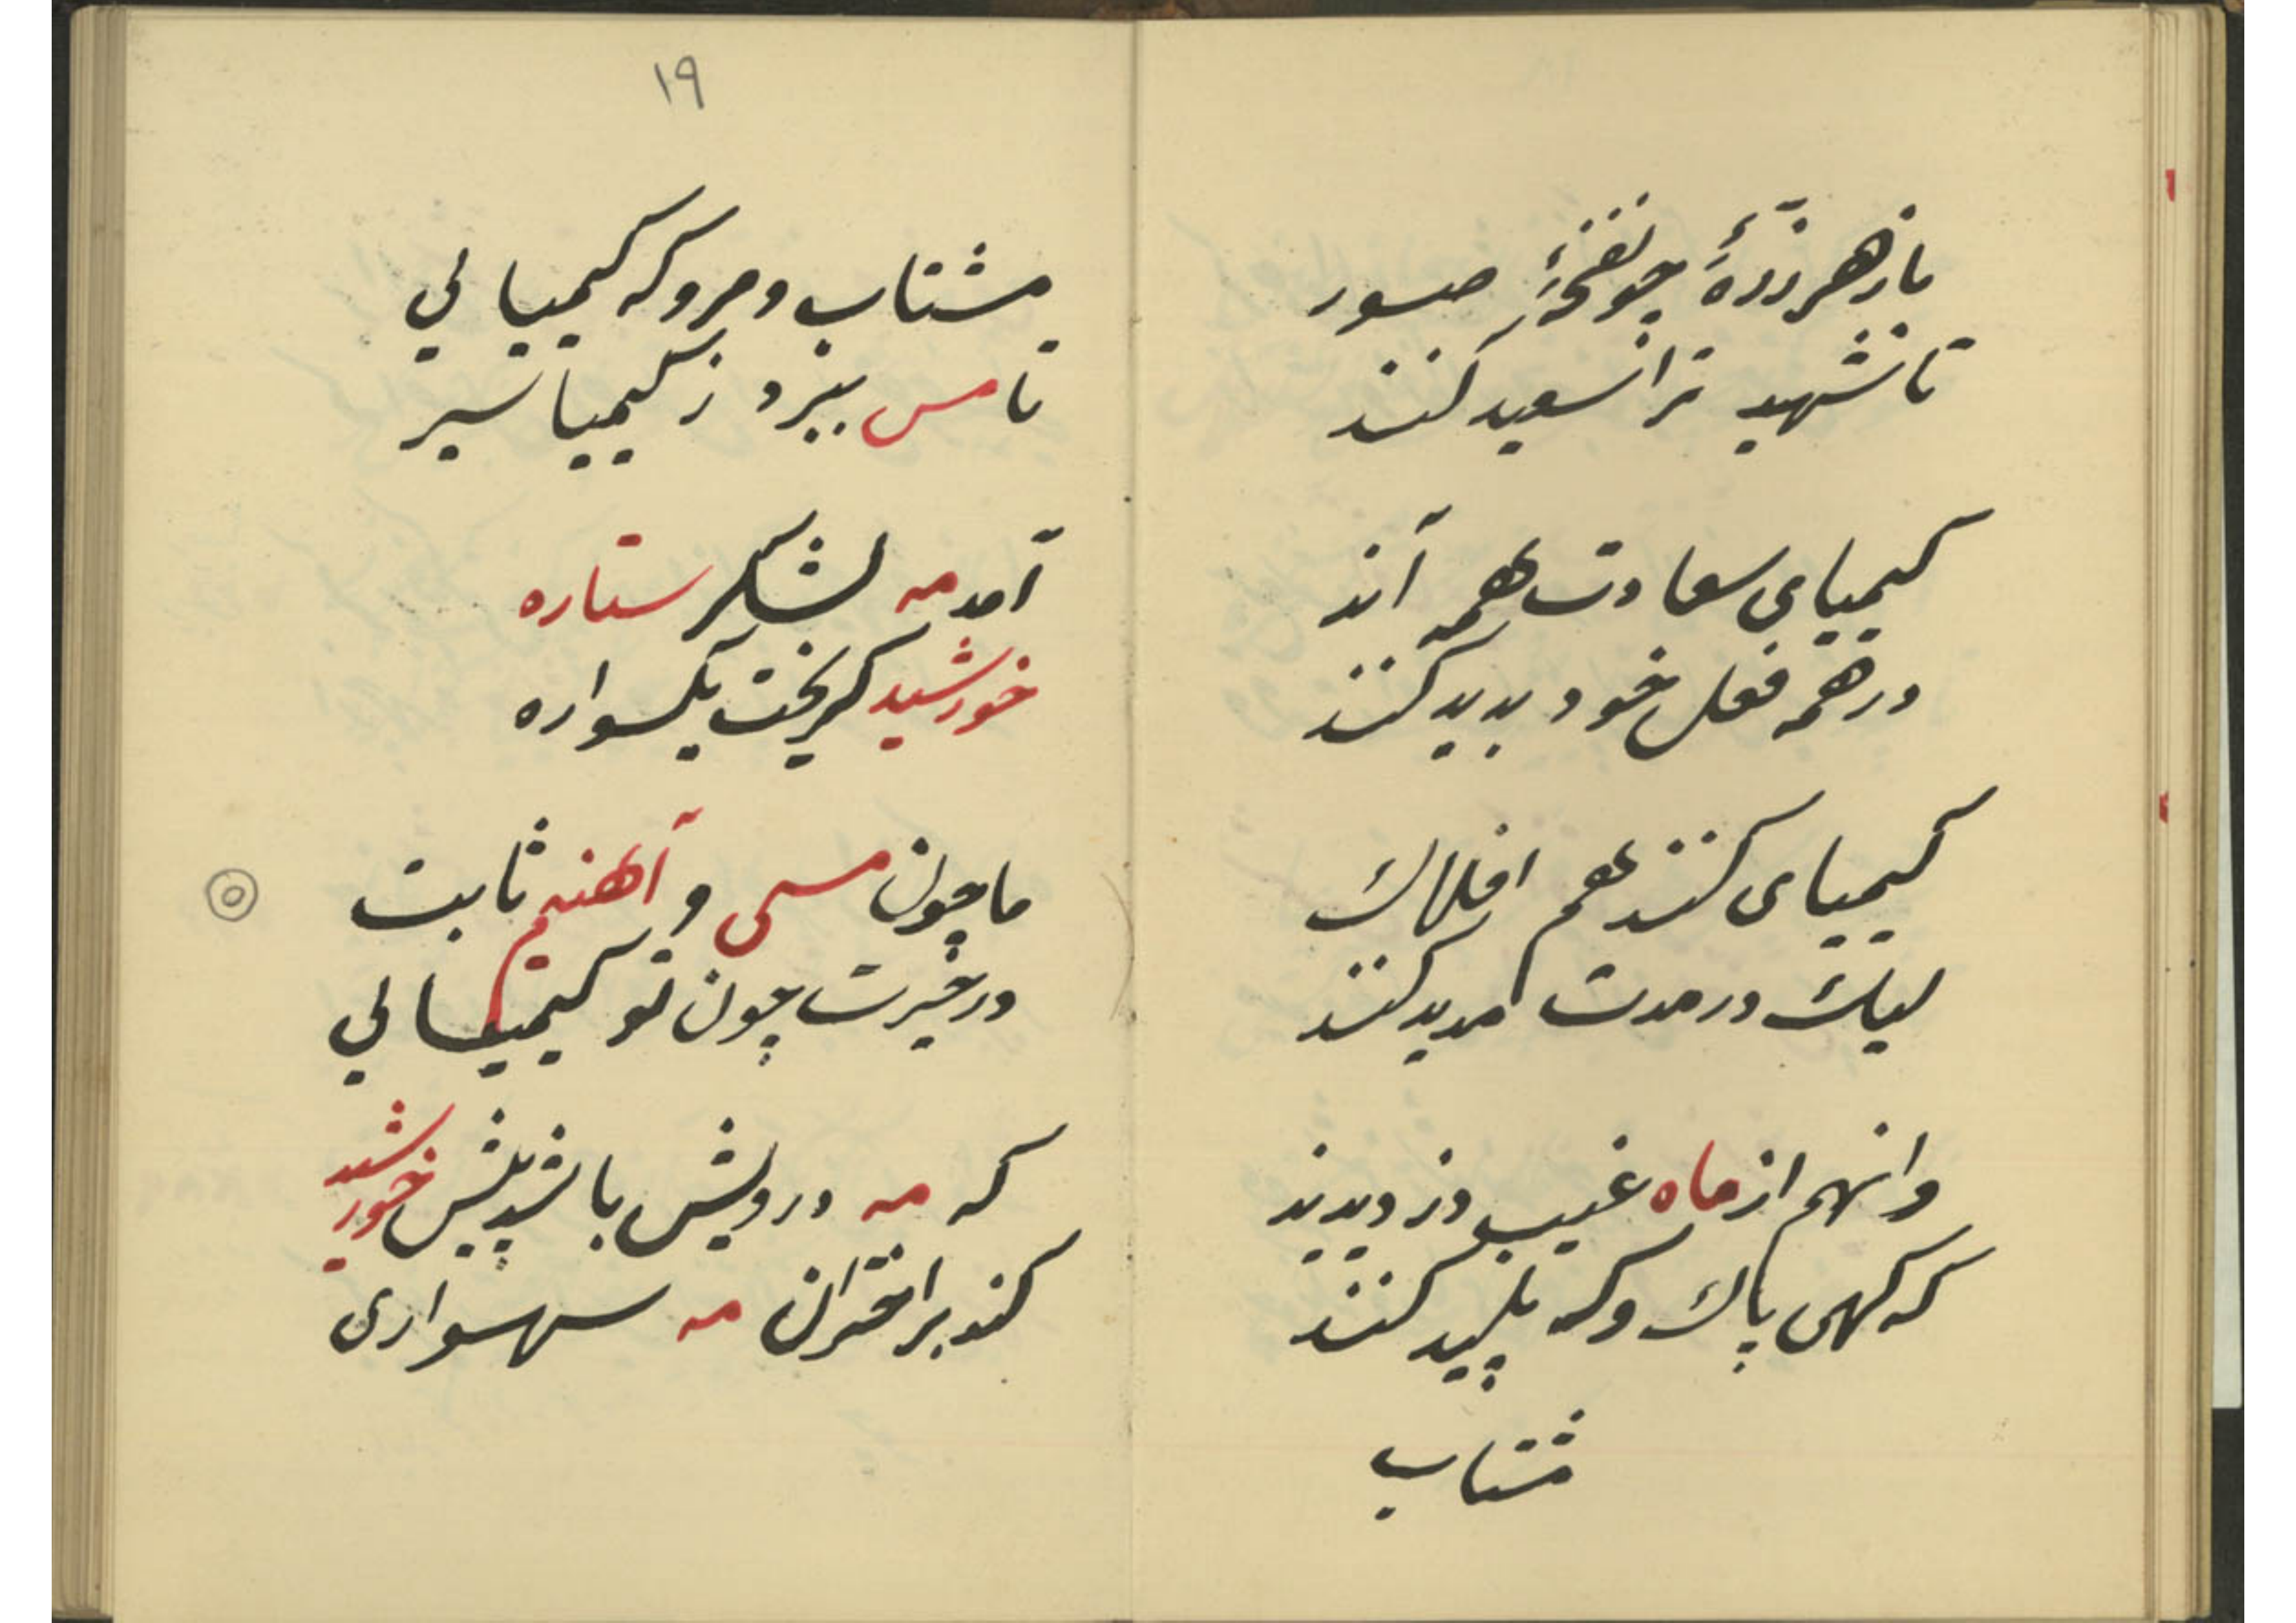 باز هر زردهٔ چو نفخهٔ صور
تا شهید ترا سعید کنند
کیمیای سعادت همه آند
در همه فعل خود بدید کنند
کیمیای کنند هم افلاك
لیك در مدت مدید کنند
وانهم از ماه غیب دزدیدیند
که کهی پاك وکه پلید کنند
مشتاب
۱۹
مشتاب و مرو که کیمیالی
تا مس ببزد ز کیمیا سیر
آمد مه لشکر ستاره
خورشید کریخت یکسواره
ما چون مسی و آهنیم ثابت
در غیرت چون تو کیمیالی
که مه درویش باشد پیش خورشید
کند بر اختران مه سهسواری